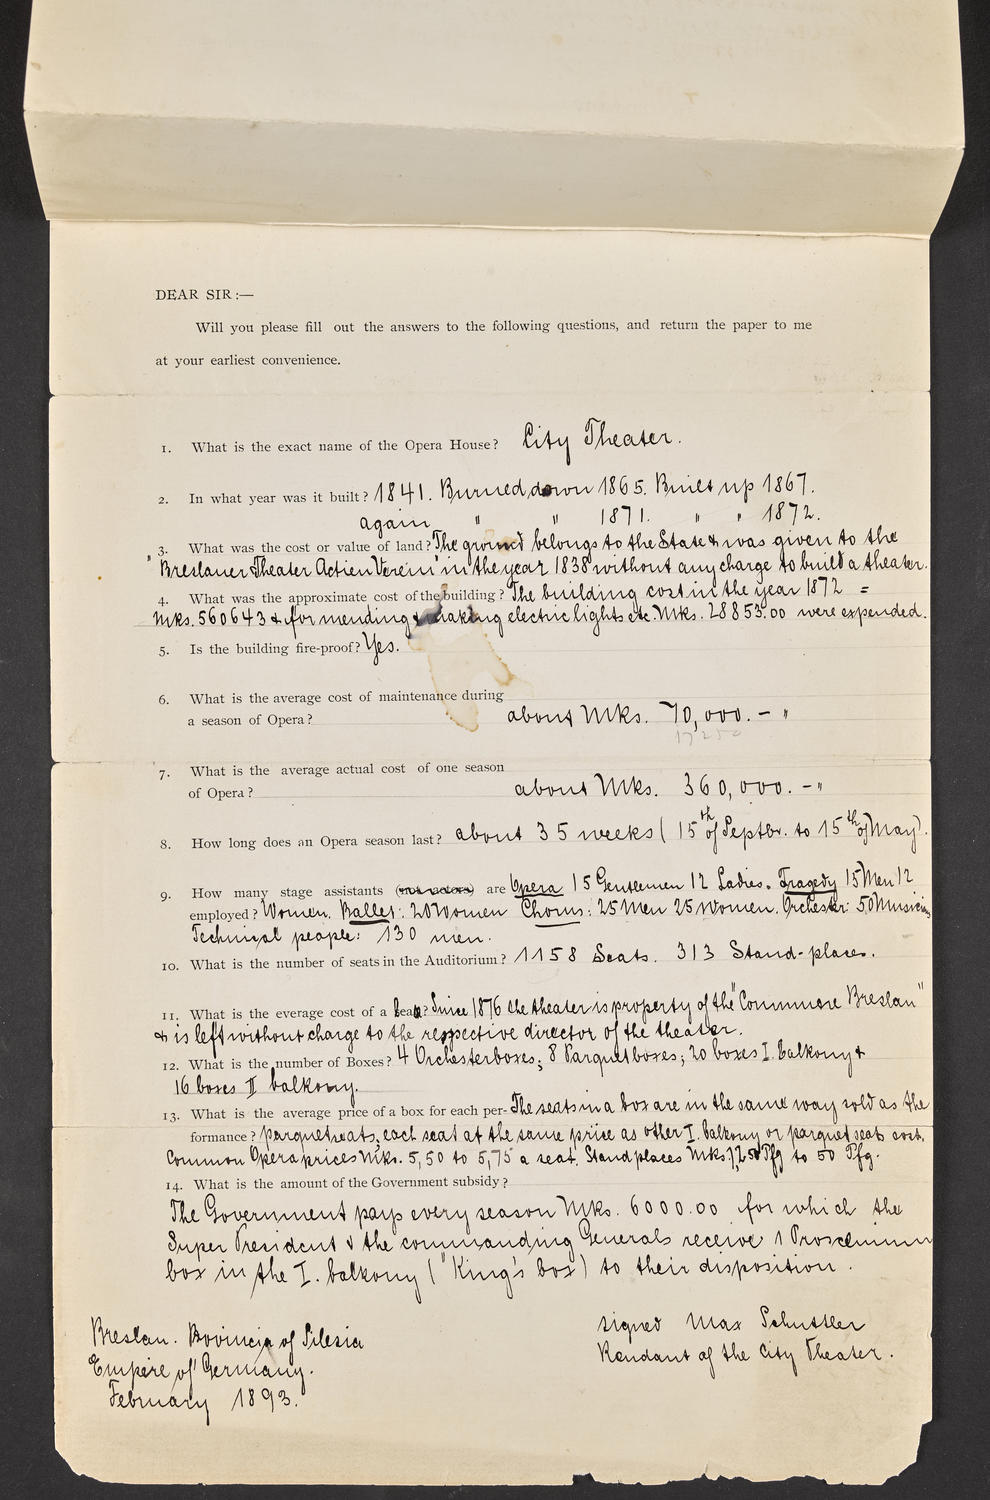 DEAR SIR:—
Will you please fill out the answers to the following questions, and return the paper to me
at your earliest convenience.
1. What is the exact name of the Opera House? City Theater.
2. In what year was it built? 1841. Burned down 1865. Built up 1867.
again " " 1871. " " 1872.
3. What was the cost or value of land? The ground belongs to the State & was given to the
"Breslauer Theater Actien Verein" in the year 1838 without any charge to build a theater.
4. What was the approximate cost of the building? The building cost in the year 1872 =
Mks. 560643 & for mending & making electric lights etc. Mks. 28853.00 were expended.
5. Is the building fire-proof? Yes.
6. What is the average cost of maintenance during
a season of Opera? about Mks. 70,000. – "
17250
7. What is the average actual cost of one season
of Opera? about Mks. 360,000. – "
8. How long does an Opera season last? about 35 weeks (15th of Septbr. to 15th of May).
9. How many stage assistants (not actors) are Opera 15 Gentlemen 12 Ladies. Tragedy 15 Men 12
employed? Women. Ballet: 20 Women Chorus: 25 Men 25 Women. Orchester: 50 Musicians
Technical people: 130 men.
10. What is the number of seats in the Auditorium? 1158 Seats. 313 Stand-places.
11. What is the everage cost of a box? Since 1876 the theater is property of the "Commune Breslau"
& is left without charge to the respective director of the theater.
12. What is the number of Boxes? 4 Orchesterboxes; 8 Parquetboxes; 20 boxes I. balkony &
16 boxes II balkony.
13. What is the average price of a box for each per- The seats in a box are in the same way sold as the
formance? parquetseats, each seat at the same price as other I. balkony or parquet seats cost.
Common Opera prices Mks. 5,50 to 5,75 a seat. Standplaces Mks 1,25 Pfg to 50 Pfg.
14. What is the amount of the Government subsidy?
The Government pays every season Mks. 6000.00 for which the
Super President & the commanding Generals receive 1 Proscenium
box in the I. balkony ("King's box) to their disposition.
Breslau. Provincia of Silesia
Empire of Germany.
February 1893.
signed Max Schuttler
Rendant of the City Theater.